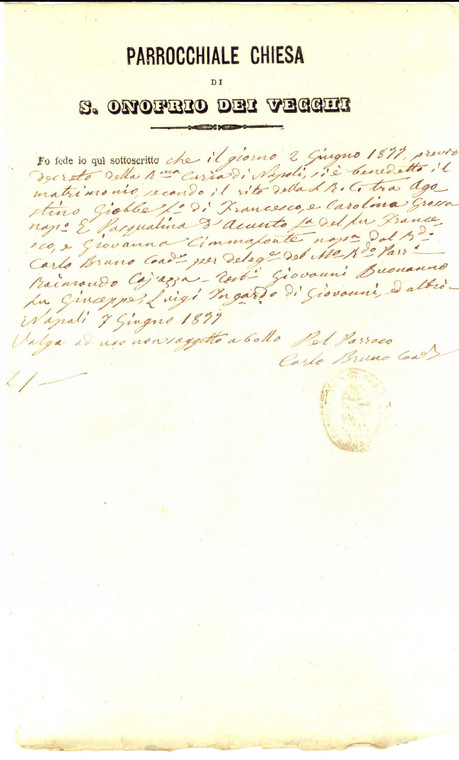 PARROCCHIALE CHIESA
DI
S. ONOFRIO DEI VECCHI
Fo fede io qui sottoscritto che il giorno 2 Giugno 1877, previo
decreto della Rma Curia di Napoli, si è benedetto il
matrimonio secondo il rito della S. R. C. tra Ago
stino Giobbe fo di Francesco, e Carolina Grossa
napa E Pasqualina D'Acunto fa del fu France
sco, e Giovanna Cimmafonte napa dal Rdo
Carlo Bruno Coadre per delege del Mo Rdo Parro
Raimondo Cajazza - Testi Giovanni Buonanno
fu Giuseppe, Luigi di Giovanni, ed altri -
Napoli 7 Giugno 1877
Valga ad uso non soggetto a bollo Pel Parroco
Carlo Bruno Coadre